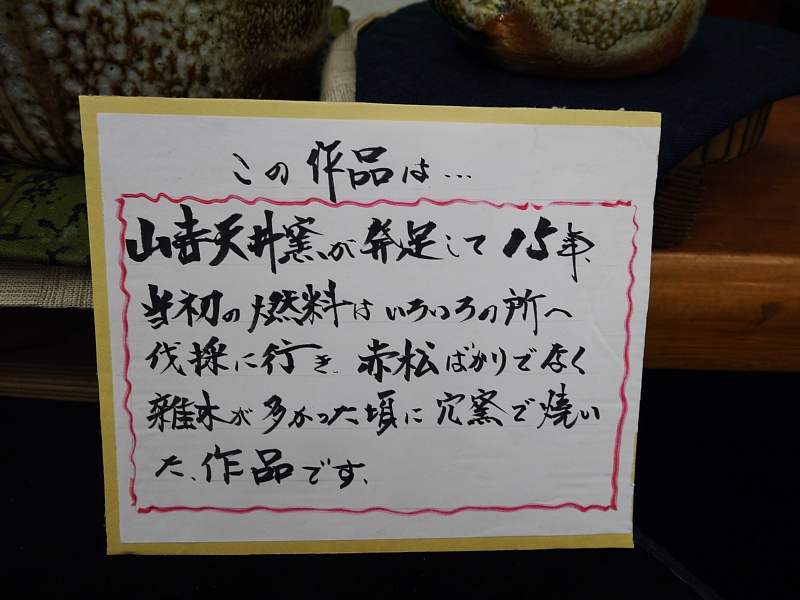 この作品は…
山寺天井窯が発足して15年、
当初の燃料はいろいろの所へ
伐採に行き、赤松ばかりでなく
雑木が多かった頃に穴窯で焼い
た、作品です、